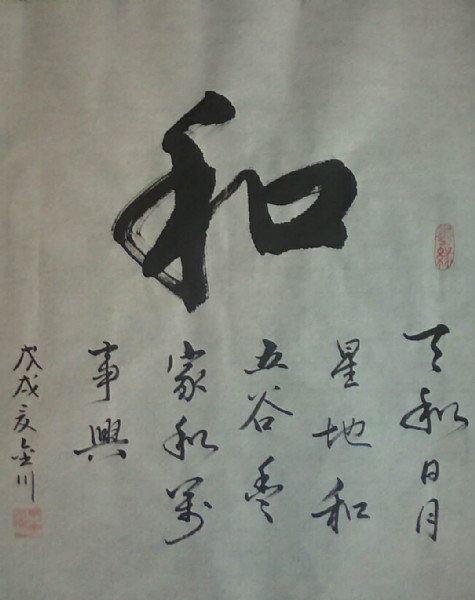 和
天和日月
星地和
五谷豐
家和萬
事興
戊戌夏金川